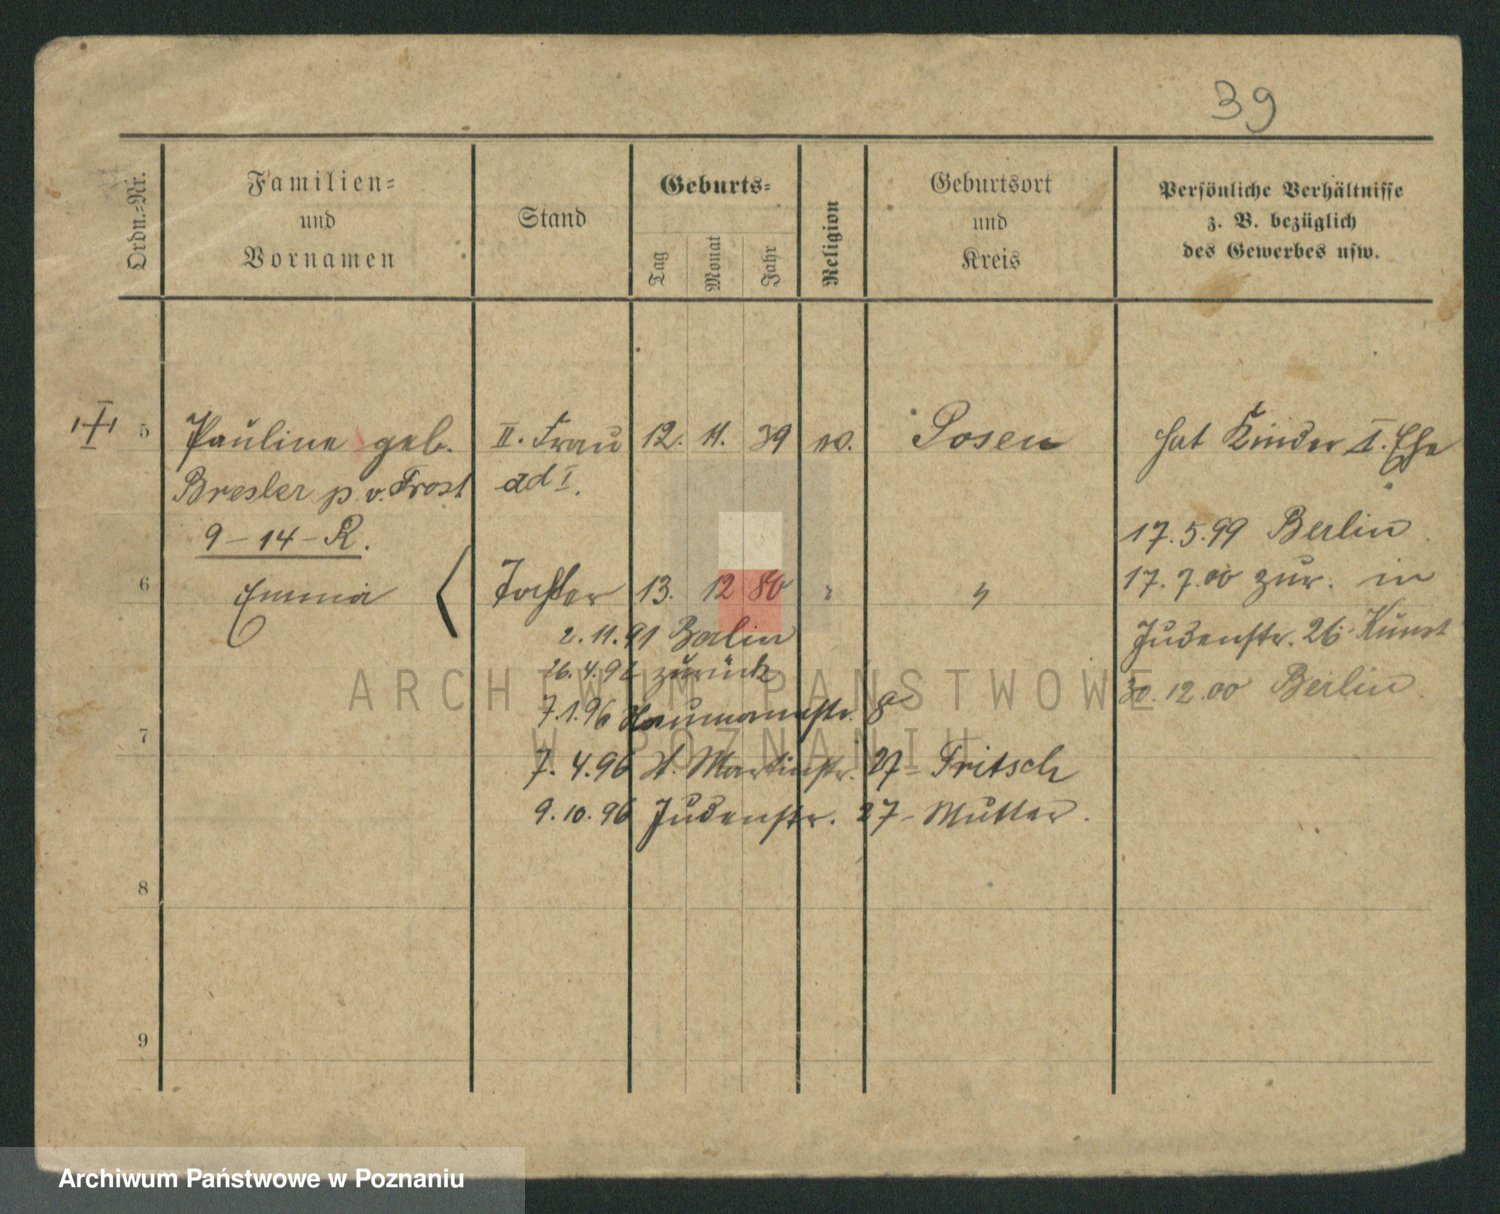 39
Ordn.-Nr.
Familien-
und
Vornamen
Stand
Geburts-
Tag
Monat
Jahr
Religion
Geburtsort
und
Kreis
Persönliche Verhältnisse
z. B. bezüglich
des Gewerbes usw.
5 Pauline geb. II. Frau 12. 11. 39 Posen hat Kinder I. Ehe
Bresler p. v. Frost ad I.
9 - 14 - R. 17.5.99 Berlin
6 Emma Tochter 13. 12 80 " 17.7.00 zur. in
2.11.91 Berlin Judenstr. 26 Kunst
26.4.92 zurück
30.12.00 Berlin
7.1.96 Naumannstr. 8
7
7.4.96 St. Martinstr. 27 - Fritsch
9.10.96 Judenstr. 27 - Mutter.
8
9
ARCHIWUM PAŃSTWOWE
W POZNANIU
Archiwum Państwowe w Poznaniu